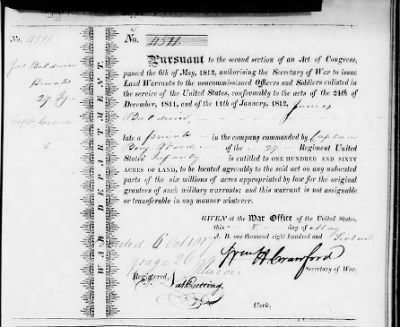 No. 4511.
No. 4511.
Jas Baldwin
Private
29
PURSUANT to the second section of an Act of Congress,
passed the 6th of May, 1812, authorising the Secretary of War to issue
Land Warrants to the noncommissioned Officers and Soldiers enlisted in
the service of the United States, conformably to the acts of the 24th of
December, 1811, and of the 11th of January, 1812, James
Baldwin
late a private in the company commanded by Captain
of the 29 Regiment United
States Infantry is entitled to ONE HUNDRED AND SIXTY
ACRES OF LAND, to be located agreeably to the said act on any unlocated
parts of the six millions of acres appropriated by law for the original
grantees of such military warrants; and this warrant is not assignable
or transferable in any manner whatever.
GIVEN at the War Office of the United States,
this 8 day of May
A. D. one thousand eight hundred and Sixteen
6 Oct 1817
page 26
Illinois
Wm H Crawford
Secretary of War.
Registered, Nat Cutting
Clerk.
WAR DEPARTMENT.